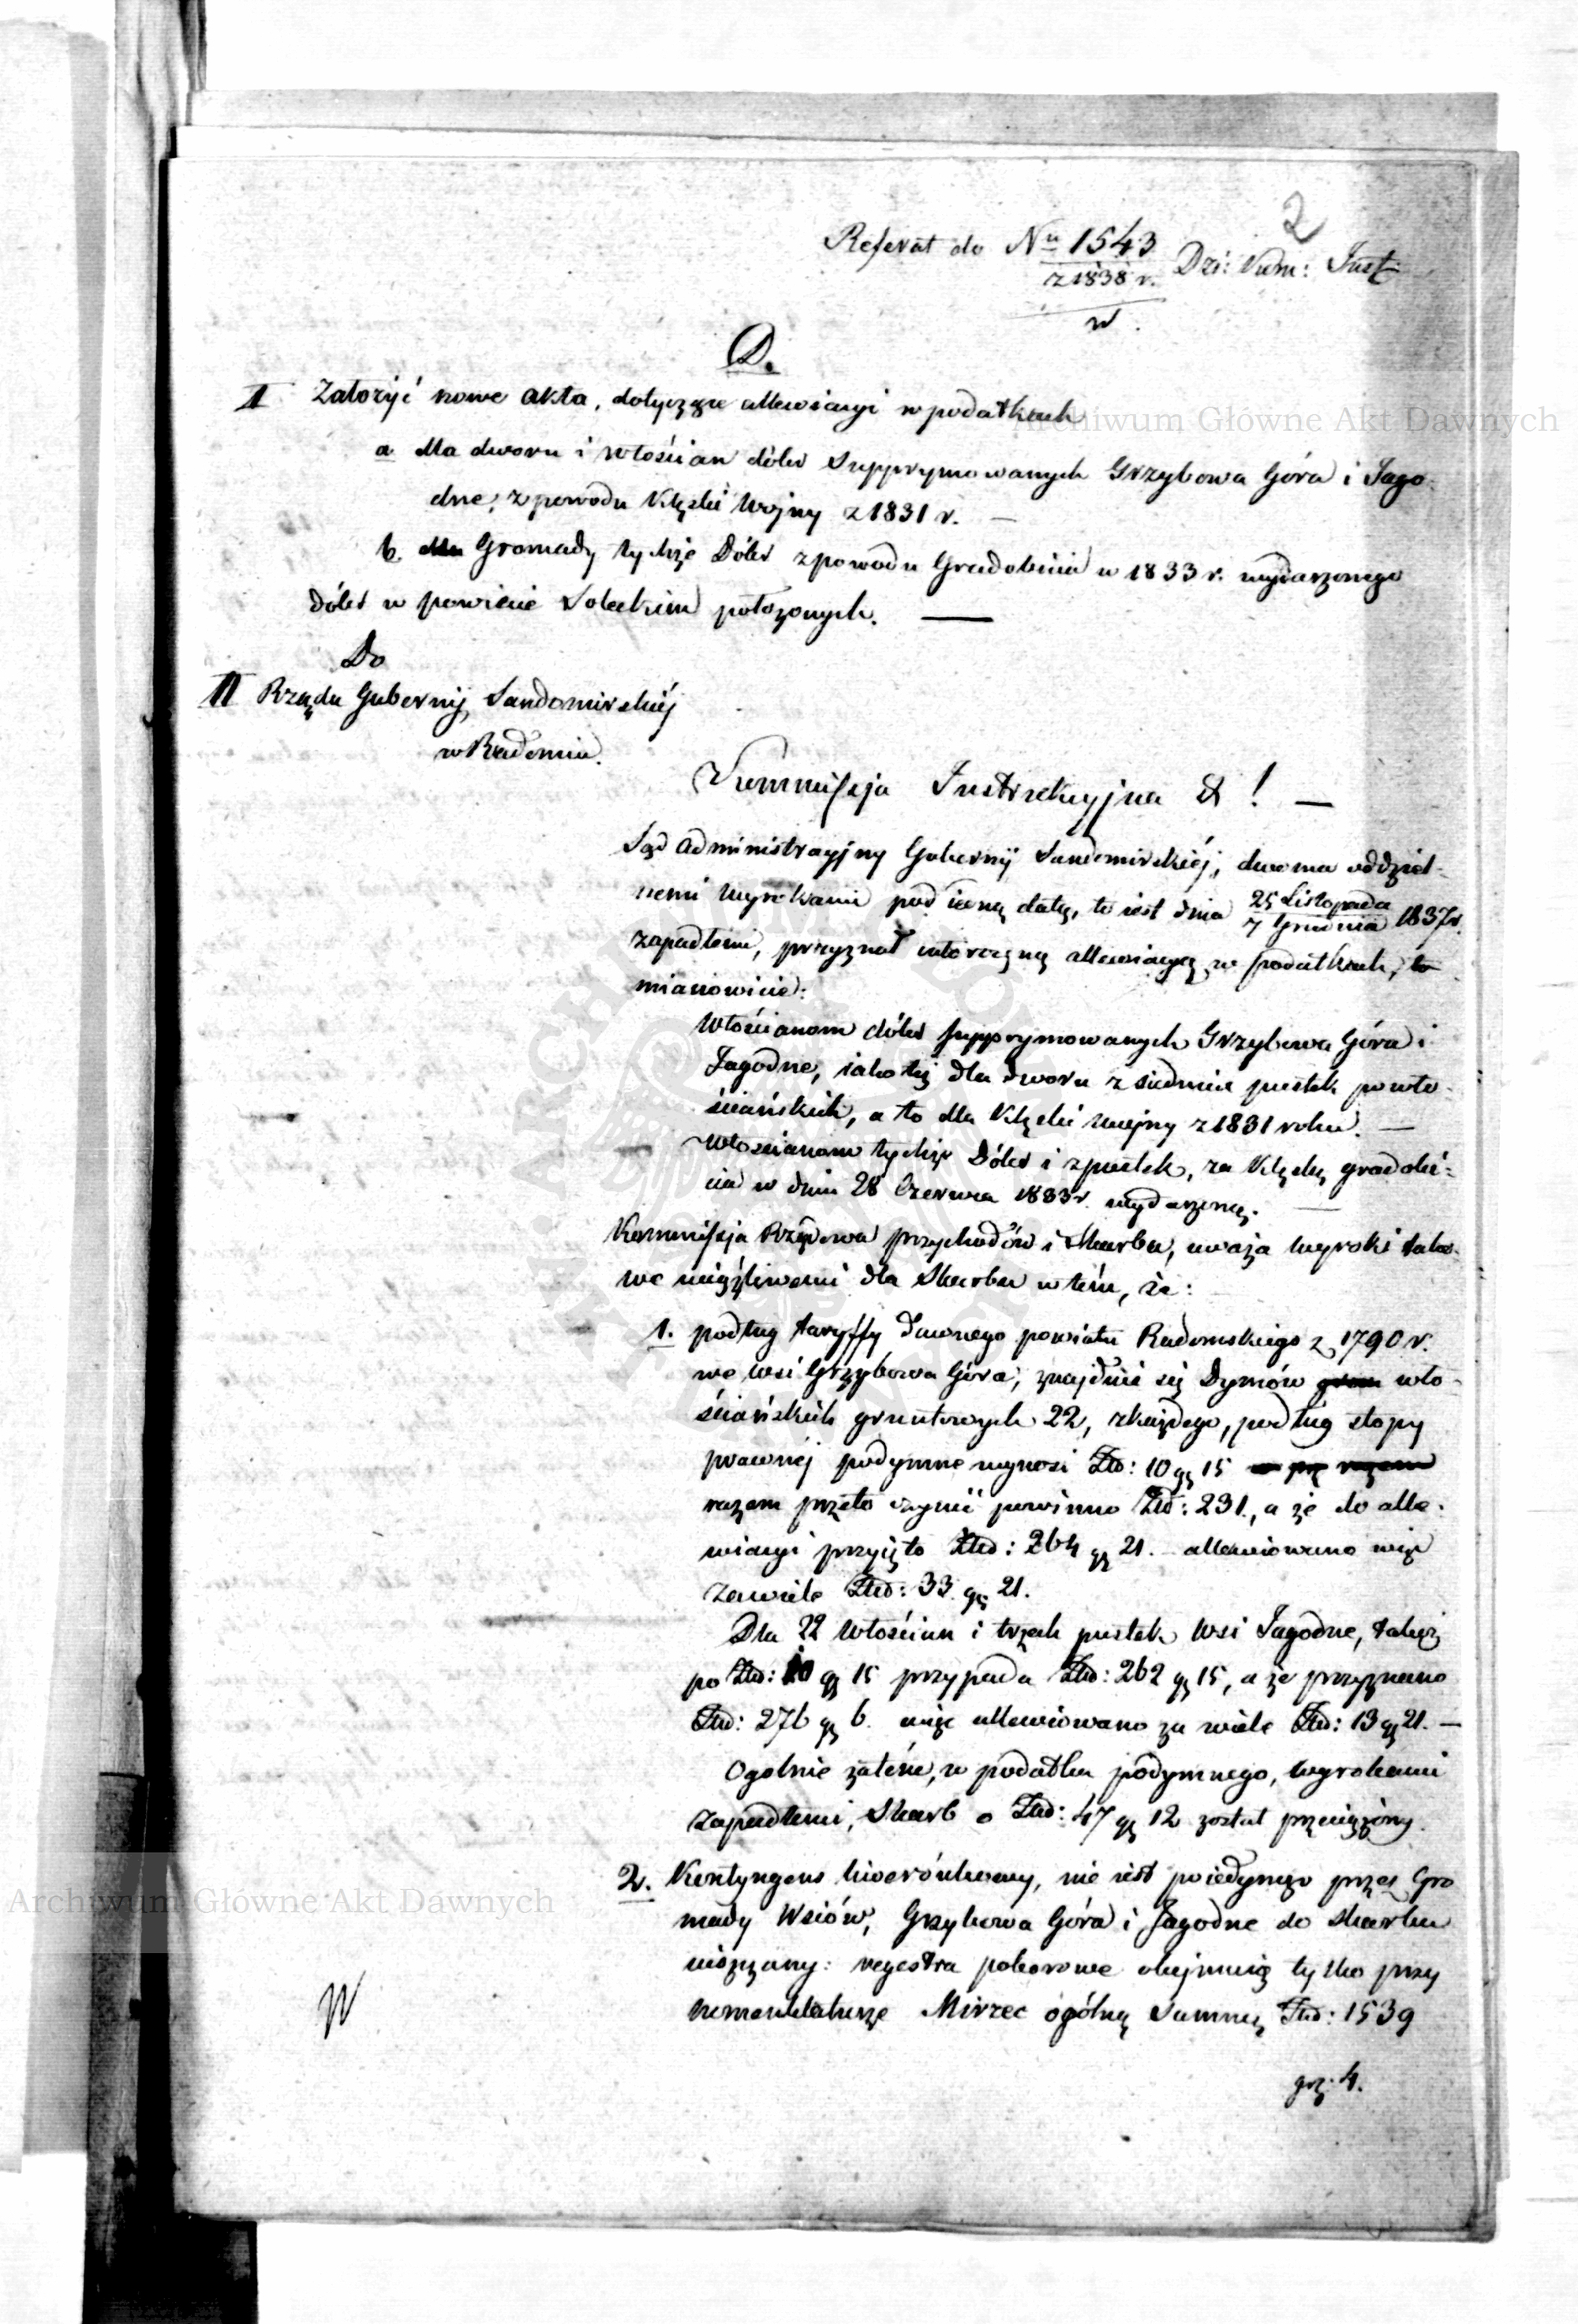 2
Referat do Nu 1543 Dzi: Kom: Inst:
z 1838 r.
w.
D.
I Założyć nowe akta, dotyczące allewiacyi w podatkach
Archiwum Główne Akt Dawnych
a dla dworu i włościan dóbr Supprymowanych Grzybowa Góra i Jago-
dne, z powodu klęski Wojny z 1831 r. —
b. dla Gromady tychże Dóbr z powodu Gradobicia w 1833 r. wydarzonego
dóbr w powiecie Soleckim położonych. —
Do
II Rządu Gubernij Sandomirskiéj
w Radomiu.
Kommissja Instrukcyjna & ! —
Sąd Administracyjny Gubernij Sandomirskiéj, dwoma oddziel-
nemi wyrokami pod iedną datą, to iest dnia 25 Listopada / 7 Grudnia 1837 r.
zapadłemi, przyznał allewiacyą w podatkach, to
mianowicie:
Włościanom dóbr supprymowanych Grzybowa Góra i
Jagodne, iako też dla dworu z siedmiu pustek po wło-
ściańskich, a to dla klęski wojny z 1831 roku. —
Włościanom tychże Dóbr i z pustek, za klęskę gradobi-
cia w dniu 28 Czerwca 1833 r. wydarzoną. —
Kommissja Rządowa przychodów i Skarbu, uważa wyroki tako-
we uciążliwemi dla Skarbu w tém, że:
1. podług taryffy dawnego powiatu Radomskiego z 1790 r.
we wsi Grzybowa Góra, znajduie się Dymów grun wło-
ściańskich gruntowych 22, z każdego, podług stopy
prawnéj podymne wynosi Złł: 10 gr 15
razem przeto czynić powinno Złł: 231., a że do alle-
wiacyi przyięto Złł: 264 gr 21. allewiowano więc
zawiele Złł: 33 gr 21.
Dla 22 Włościan i trzech pustek wsi Jagodne, także
po Złł: 10 gr 15 przypada Złł: 262 gr 15, a że przyznano
Złł: 276 gr 6. więc allewiowano za wiele Złł: 13 gr 21. —
Ogolnie zatém, w podatku podymnego, wyrokami
zapadłemi, Skarb o Złł: 47 gr 12 został przeciążony.
2. Kontyngens liwerónkowy, nie iest poiedynczo przez Gro
Archiwum Główne Akt Dawnych
mady Wsiów, Grzybowa Góra i Jagodne do skarbu
wnoszony: regestra poborowe obejmuią tylko przy
nomenklaturze Mirzec ogólną Summę Złł: 1539
gr: 4.